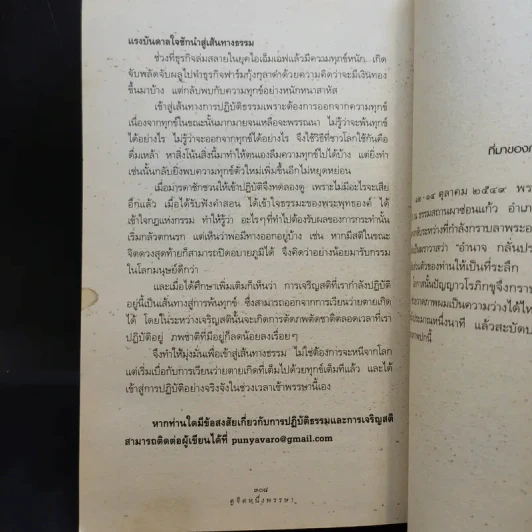 แรงบันดาลใจชักนำสู่เส้นทางธรรม
ช่วงที่ธุรกิจล่มสลายในยุคไอเอ็มเอฟแล้วมีความทุกข์หนัก เกิด
จับพลัดจับผลูไปทำธุรกิจฟาร์มกุ้งกุลาดำด้วยความคิดว่าจะมีเงินทอง
ขึ้นมาบ้าง แต่กลับพบกับความทุกข์อย่างหนักหนาสาหัส
เข้าสู่เส้นทางการปฏิบัติธรรมเพราะต้องการออกจากความทุกข์
เนื่องจากทุกข์ในขณะนั้นมากมายจนเหลือจะพรรณนา ไม่รู้ว่าจะพ้นทุกข์
ได้อย่างไร ไม่รู้ว่าจะออกจากทุกข์ได้อย่างไร จึงใช้วิธีที่ชาวโลกใช้กันคือ
ดื่มเหล้า หาสิ่งโน้นสิ่งนี้มาทำให้ตนเองลืมความทุกข์ไปได้บ้าง แต่ยิ่งทำ
เช่นนั้นกลับยิ่งพบความทุกข์ตัวใหม่เพิ่มขึ้นอีกไม่หยุดหย่อน
เมื่อมารดาชักชวนให้เข้าปฏิบัติจึงทดลองดู เพราะไม่มีอะไรจะเสีย
อีกแล้ว เมื่อได้รับฟังคำสอน ได้เข้าใจธรรมะของพระพุทธองค์ ได้
เข้าใจกฎแห่งกรรม ทำให้รู้ว่า อะไรๆที่ทำไปต้องรับผลของการกระทำนั้น
เริ่มกลัวตกนรก แต่เห็นว่าพอมีทางออกอยู่บ้าง เช่น หากมีสติในขณะ
จิตดวงสุดท้ายก็สามารถปิดอบายภูมิได้ จึงคิดว่าอย่างน้อยมารับกรรม
ในโลกมนุษย์ดีกว่า
และเมื่อได้ศึกษาเพิ่มเติมก็เห็นว่า การเจริญสติที่เรากำลังปฏิบัติ
อยู่นี้เป็นเส้นทางสู่การพ้นทุกข์ ซึ่งสามารถออกจากการเวียนว่ายตายเกิด
ได้ โดยในระหว่างเจริญสตินั้นจะเกิดการตัดภพตัดชาติตลอดเวลาที่เรา
ปฏิบัติอยู่ ภพชาติที่มีอยู่ก็ลดน้อยลงเรื่อยๆ
จึงทำให้มุ่งมั่นเพื่อเข้าสู่เส้นทางธรรม ไม่ใช่ต้องการจะหนีจากโลก
แต่เริ่มเบื่อกับการเวียนว่ายตายเกิดที่เต็มไปด้วยทุกข์เต็มที่แล้ว และได้
เข้าสู่การปฏิบัติอย่างจริงจังในช่วงเวลาเข้าพรรษานี้เอง
หากท่านใดมีข้อสงสัยเกี่ยวกับการปฏิบัติธรรมและการเจริญสติ
สามารถติดต่อผู้เขียนได้ที่ punyavaro@gmail.com
๓๐๘
ดูจิตหนึ่งพรรษา
ที่มาของ
ตุลาคม ๒๕๔๙
ธรรมสถานผาซ่อนแก้ว
ระหว่างที่กำลังกราบลาพระ
"อำนาจ กลั่นประ
ของท่านให้เป็นที่ระลึก
นั้นปัญญาวโรภิกขุจึงกราบ
ภาพผมเป็นความว่างได้ไห
ประมาณหนึ่งนาที แล้ว